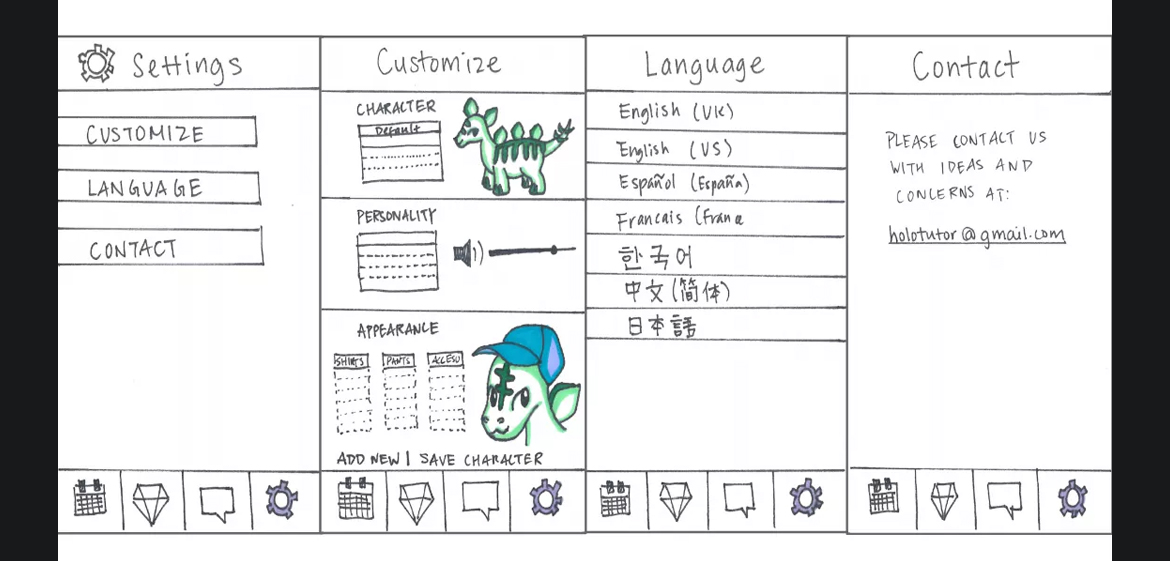 Settings
CUSTOMIZE
LANGUAGE
CONTACT
Customize
CHARACTER
Default
PERSONALITY
APPEARANCE
SHIRTS PANTS ACCESO
ADD NEW | SAVE CHARACTER
Language
English (UK)
English (US)
Español (España)
Francais (France
한국어
中文(简体)
日本語
Contact
PLEASE CONTACT US
WITH IDEAS AND
CONCERNS AT:
holotutor@gmail.com